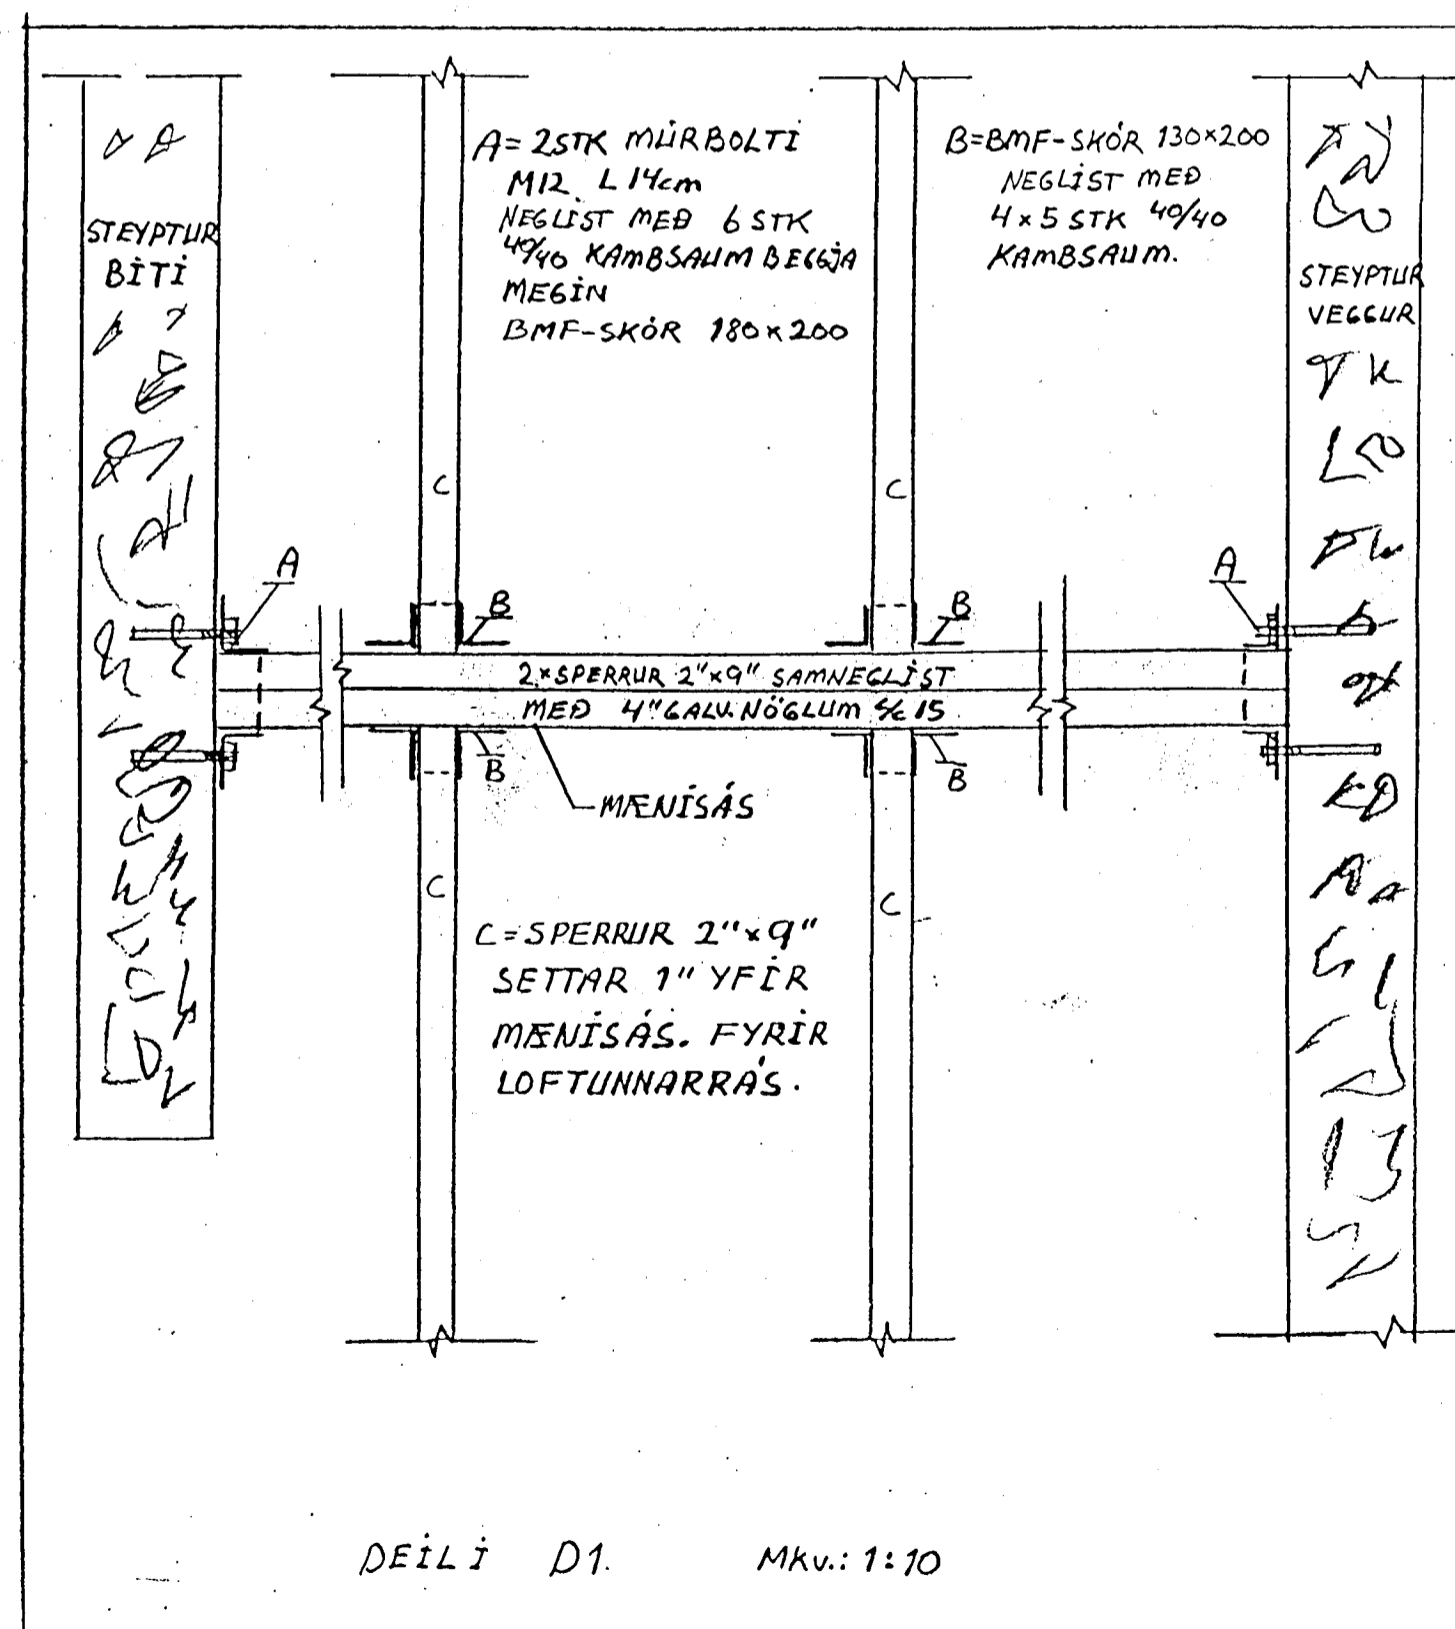 A=2STK MÚRBOLTI
M12 L 14cm
NEGLIST MEÐ 6 STK
40/40 KAMBSAUM BEGGJA
MEGIN
BMF-SKÓR 180×200
B=BMF-SKÓR 130×200
NEGLIST MEÐ
4×5 STK 40/40
KAMBSAUM.
STEYPTUR
BITI
STEYPTUR
VEGGUR
C
C
A
A
B
B
2×SPERRUR 2"×9" SAMNEGLIST
MEÐ 4" GALV. NÖGLUM S/C 15
B
B
MÆNISÁS
C
C
C=SPERRUR 2"×9"
SETTAR 1" YFIR
MÆNISÁS. FYRIR
LOFTUNNARRÁS.
DEILI D1. Mkv.: 1:10